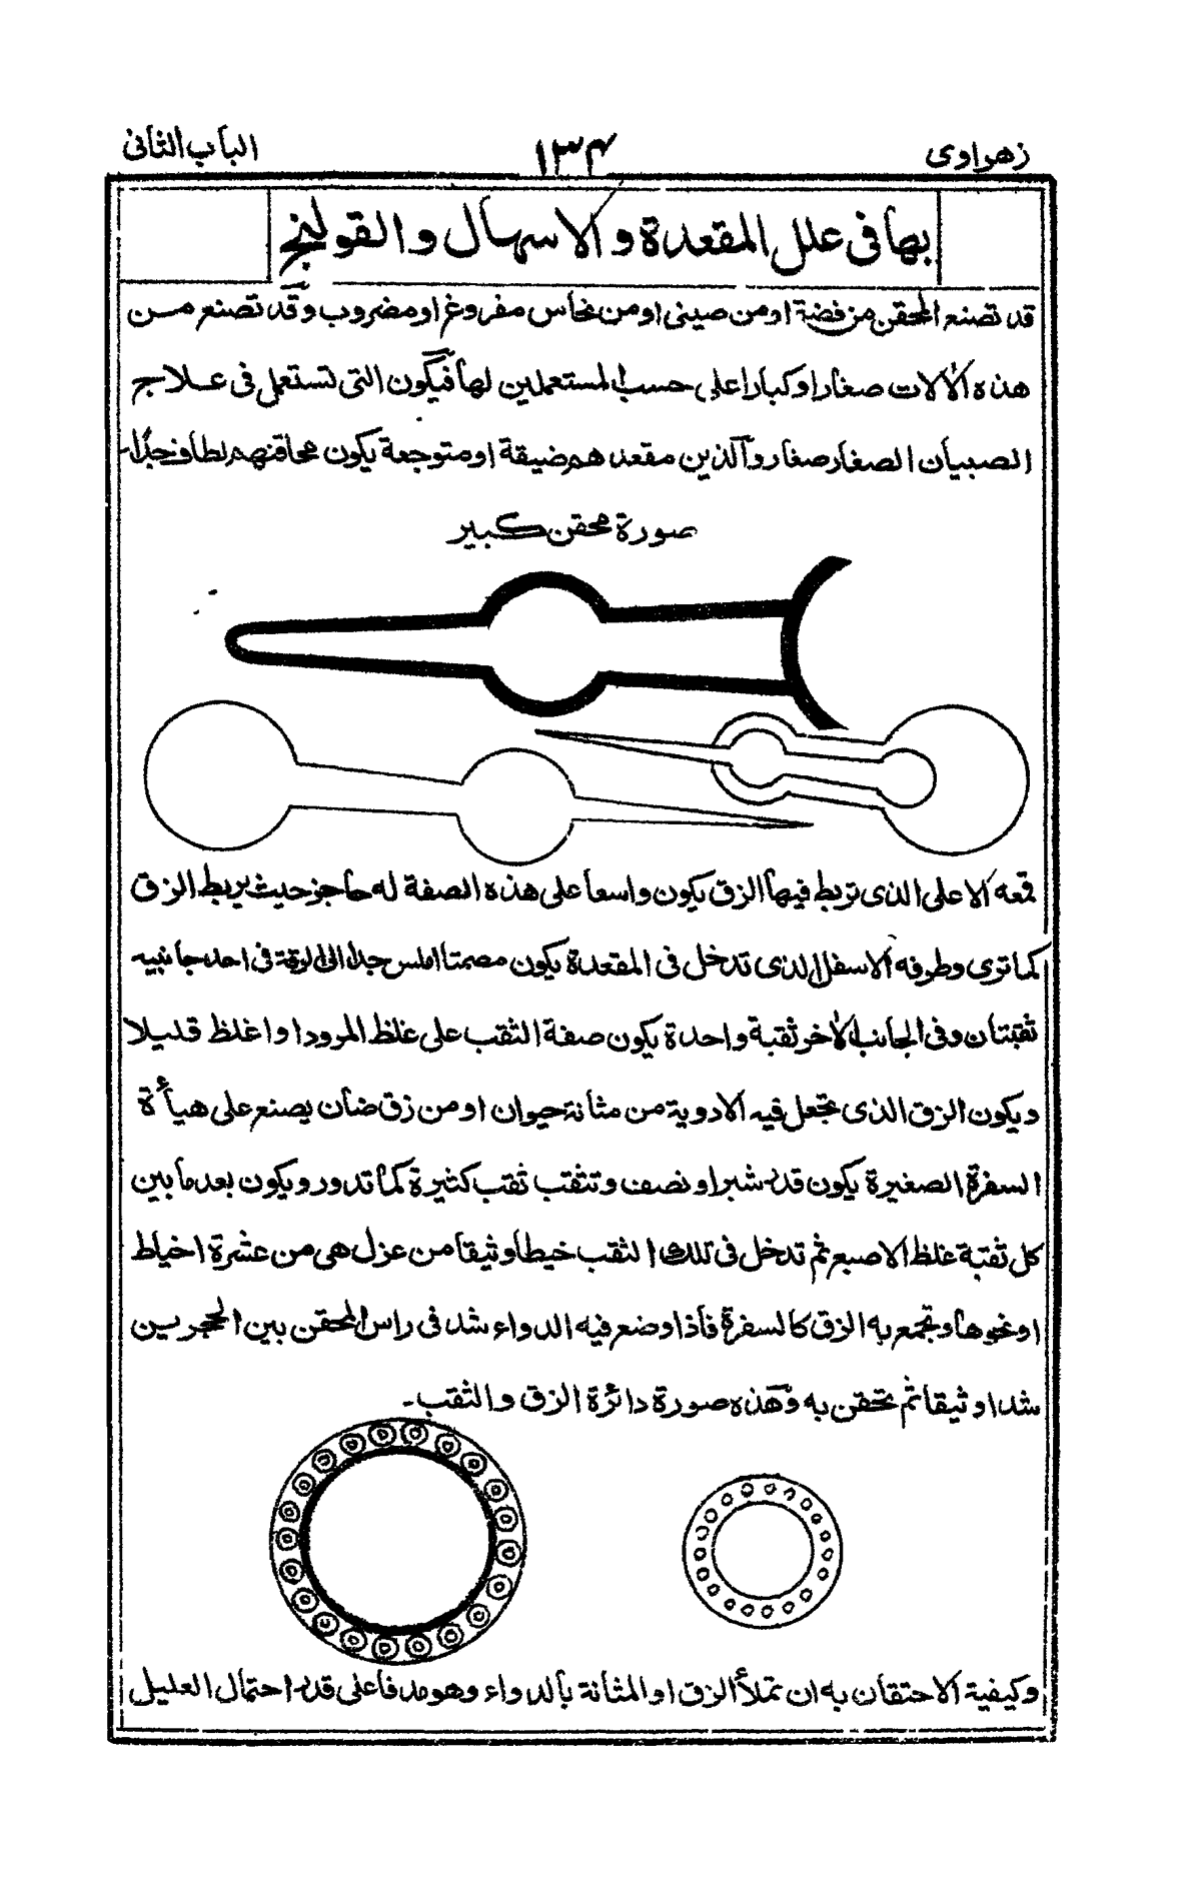 زهراوى ١٣٤ الباب الثانى
بها فى علل المقعدة والاسهال والقولنج
قد تصنع المحقن من فضة اومن صينى اومن نحاس مفروغ اومضروب وقد تصنع من
هذه الألات صغارا وكبارا على حسب المستعملين لها فيكون التى تستعمل فى علاج
الصبيان الصغار صغار والذين مقعدهم ضيقة اومتوجعة يكون محاقنهم لطاف جدا
صورة محقن كبير
قمعه الاعلى الذى تربط فيها الزق يكون واسعا على هذه الصفة له حاجز حيث يربط الزق
كما ترى وطرفه الاسفل الذى تدخل فى المقعدة يكون مصمتا املس جدا الى الرقة فى احد جانبيه
ثقبتان وفى الجانب الأخر ثقبة واحدة يكون صفة الثقب على غلظ المرود او اغلظ قليلا
ويكون الزق الذى تجعل فيه الادوية من مثانة حيوان اومن زق ضأن يصنع على هيأة
السفرة الصغيرة يكون قدر شبر او نصف وتثقب ثقب كثيرة كما تدور ويكون بعد ما بين
كل ثقبة غلظ الاصبع ثم تدخل فى تلك الثقب خيطا وثيقا من عزل هى من عشرة اخياط
اونحوها وتجمع به الزق كالسفرة فاذا وضع فيه الدواء شد فى راس المحقن بين الحجرين
شدا وثيقا ثم تحقن به وهذه صورة دائرة الزق والثقب
وكيفية الاحتقان به ان تملأ الزق او المثانة بالدواء وهو مدفا على قدر احتمال العليل